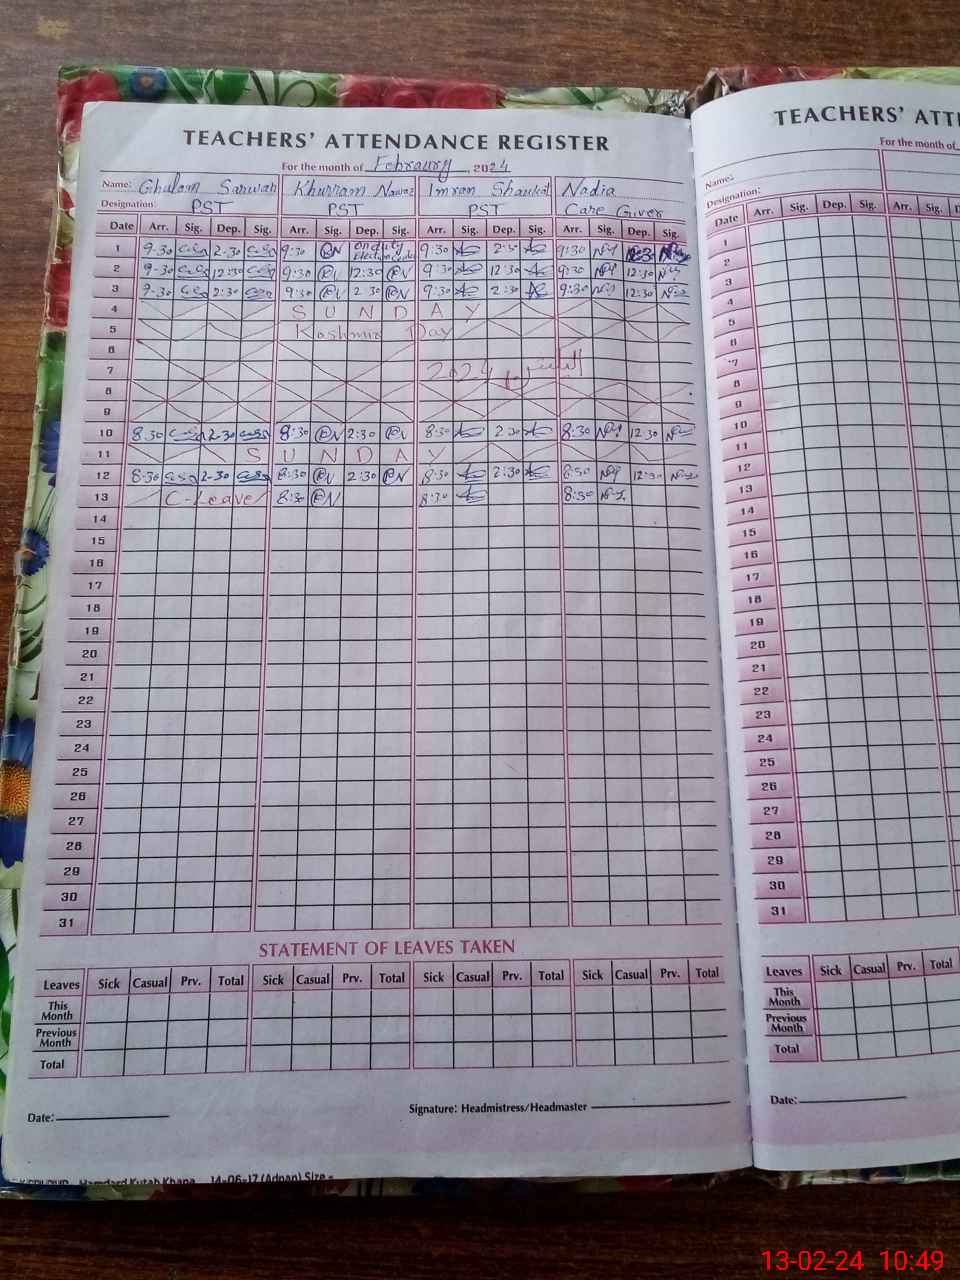 TEACHERS' ATTENDANCE REGISTER
For the month of Febraury, 2024
Name: Ghulam Sarwar Khurram Nawaz Imran Shaukat Nadia
Designation: PST PST PST Care Giver
Date Arr. Sig. Dep. Sig. Arr. Sig. Dep. Sig. Arr. Sig. Dep. Sig. Arr. Sig. Dep. Sig.
1 9:30 2:30 9:30 on duty 9:30 2:30 9:30 12:30
2 9:30 12:30 9:30 12:30 9:30 12:30 9:30 12:30
3 9:30 2:30 9:30 2:30 9:30 2:30 9:30 12:30
4 SUNDAY
5 Kashmir Day
6
7 2024 الیکشن
8
9
10 8:30 2:30 8:30 2:30 8:30 2:30 8:30 12:30
11 SUNDAY
12 8:30 2-30 8:30 2:30 8:30 2:30 8:30 12:30
13 C-Leave 8:30 8:30 8:30
14
15
16
17
18
19
20
21
22
23
24
25
26
27
28
29
30
31
STATEMENT OF LEAVES TAKEN
Leaves Sick Casual Prv. Total Sick Casual Prv. Total Sick Casual Prv. Total Sick Casual Prv. Total
This Month
Previous Month
Total
Date:
Signature: Headmistress/Headmaster
Hamdard Kutab Khana 14-06-17 (Adnan) Size
TEACHERS' ATTE
For the month of
Name:
Designation:
Date Arr. Sig. Dep. Sig. Arr. Sig. D
1
2
3
4
5
6
7
8
9
10
11
12
13
14
15
16
17
18
19
20
21
22
23
24
25
26
27
28
29
30
31
Leaves Sick Casual Prv. Total
This Month
Previous Month
Total
Date:
13-02-24 10:49